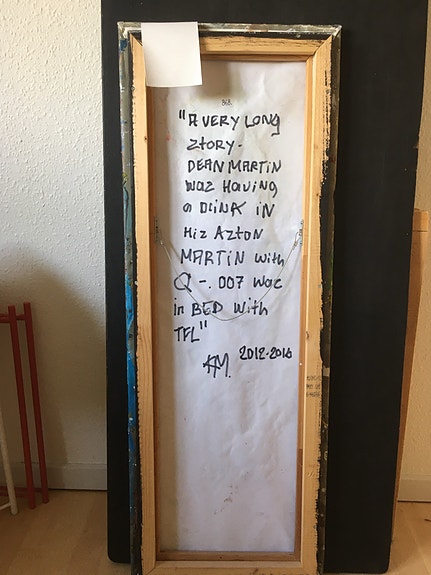 "A VERY LONG
ZTORY-
DEAN MARTIN
WAZ HAVING
a DRINK IN
HiZ AZTON
MARTIN with
Q -. 007 WaZ
in BED With
TFL"
2012-2016